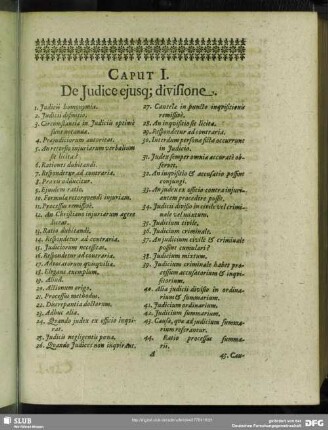 CAPUT I.
De Judice ejusq; divisione.
1. Judicii homonymia.
2. Judicii definitio.
3. Circumstantia in Judiciis optimè sunt notanda.
4. Præjudiciorum autoritas.
5. An retorsio injuriarum verbalium sit licita?
6. Rationes dubitandi.
7. Respondetur ad contraria.
8. Praxis
9. Ejusdem ratio.
10. Formula retorquendi injuriam.
11. Processus remissio.
12. An Christiani injuriarum agere
13. Ratio dubitandi.
14. Respondetur ad contraria.
15. Judiciorum necessitas.
16. Respondetur ad contraria.
17. Advocatorum
18. Elegans exemplum.
19. Aliud.
20. Aliorum origo.
21. Processus methodus.
22. Discrepantia doctorum.
23. Adhuc alia.
24. Quando judex ex officio inquirat.
25. Judicis negligentis pœna.
26. Quando Judices non inquirant.
27. Cautela in puncto inquisitionis
28. An inquisitio sit licita.
29. Respondetur ad contraria.
30. Interdum persona ficta occurrunt in Judicio.
31. Judex semper omnia accuratè observet.
32. An inquisitio & accusatio possint conjungi.
33. An judex ex officio contra injuriantem procedere possit.
34. Judicii divisio in civile vel criminale vel mixtum.
35. Judicium civile.
36. Judicium criminale.
37. An judicium civile & criminale possint cumulari?
38. Judicium mixtum.
39. Judicium criminale habet processum accusatorium & inquisitorium.
40. Alia judicii divisio in ordinarium & summarium.
41. Judicium ordinarium.
42. Judicium summarium.
43. Causæ, quæ ad judicium summarium referantur.
44. Ratio processus summarii.
45. Cau-
SLUB
Wir führen Wissen.
gefördert von der
Deutschen Forschungsgemeinschaft
DFG